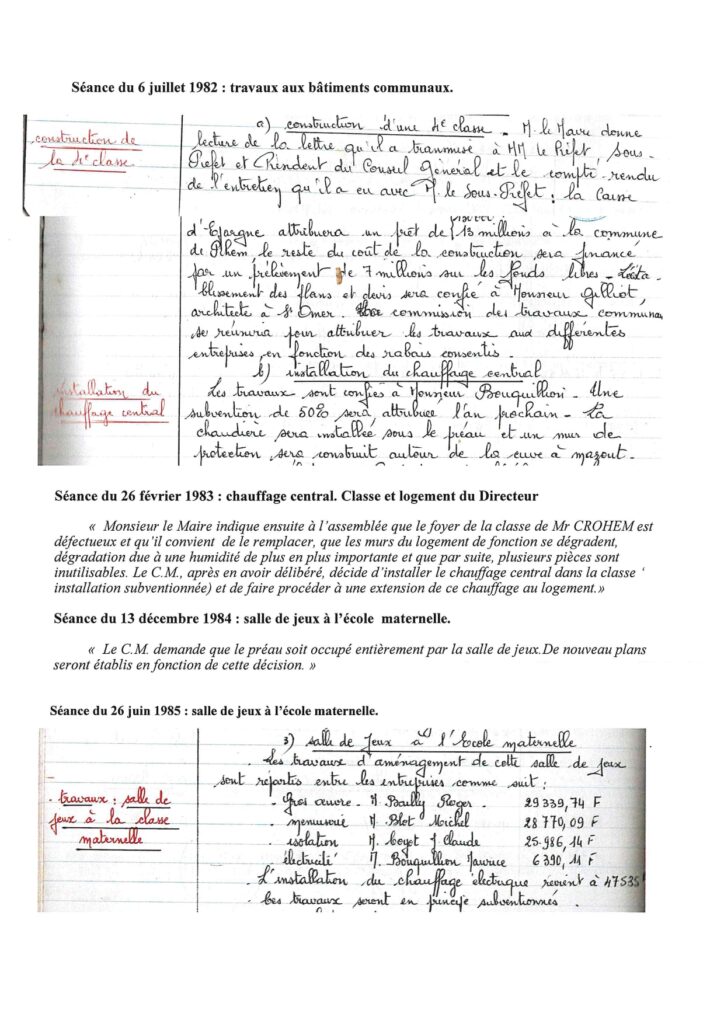 Séance du 6 juillet 1982 : travaux aux bâtiments communaux.
construction de
la 4e classe
a) construction d'une 4e classe _ M. le Maire donne
lecture de la lettre qu'il a transmise à MM le Préfet, Sous-
Préfet et Président du Conseil Général et le compte-rendu
de l'entretien qu'il a eu avec M. le Sous-Préfet : la Caisse
d'Epargne attribuera un prêt de 13 millions à la commune
de le reste du coût de la construction sera financé
par un prélèvement de 7 millions sur les fonds libres - L'éta
blissement des plans et devis sera confié à Monsieur Gilliot,
architecte à St Omer. commission des travaux communaux
se réunira pour attribuer les travaux aux différentes
entreprises en fonction des rabais consentis.
installation du
chauffage central
b) installation du chauffage central
Les travaux sont confiés à Monsieur Bouquillion - Une
subvention de 50% sera attribuée l'an prochain - La
chaudière sera installée sous le préau et un mur de
protection sera construit autour de la cuve à mazout.
Séance du 26 février 1983 : chauffage central. Classe et logement du Directeur
« Monsieur le Maire indique ensuite à l'assemblée que le foyer de la classe de Mr CROHEM est
défectueux et qu'il convient de le remplacer, que les murs du logement de fonction se dégradent,
dégradation due à une humidité de plus en plus importante et que par suite, plusieurs pièces sont
inutilisables. Le C.M., après en avoir délibéré, décide d'installer le chauffage central dans la classe ‘
installation subventionnée) et de faire procéder à une extension de ce chauffage au logement.»
Séance du 13 décembre 1984 : salle de jeux à l'école maternelle.
« Le C.M. demande que le préau soit occupé entièrement par la salle de jeux.De nouveau plans
seront établis en fonction de cette décision. »
Séance du 26 juin 1985 : salle de jeux à l'école maternelle.
. travaux : salle de
jeux à la classe
maternelle
3) salle de Jeux à l'Ecole maternelle
. Les travaux d'aménagement de cette salle de jeux
sont répartis entre les entreprises comme suit :
. Gros œuvre . M. Bailly Roger . 29 339,74 F
. menuiserie M. Blot Michel 28 770,09 F
. isolation M. J Claude 25.986,14 F
électricité M. Bouquillion Maurice 6 390,11 F
. L'installation du chauffage électrique revient à 47535F
. Ces travaux seront en principe subventionnés .